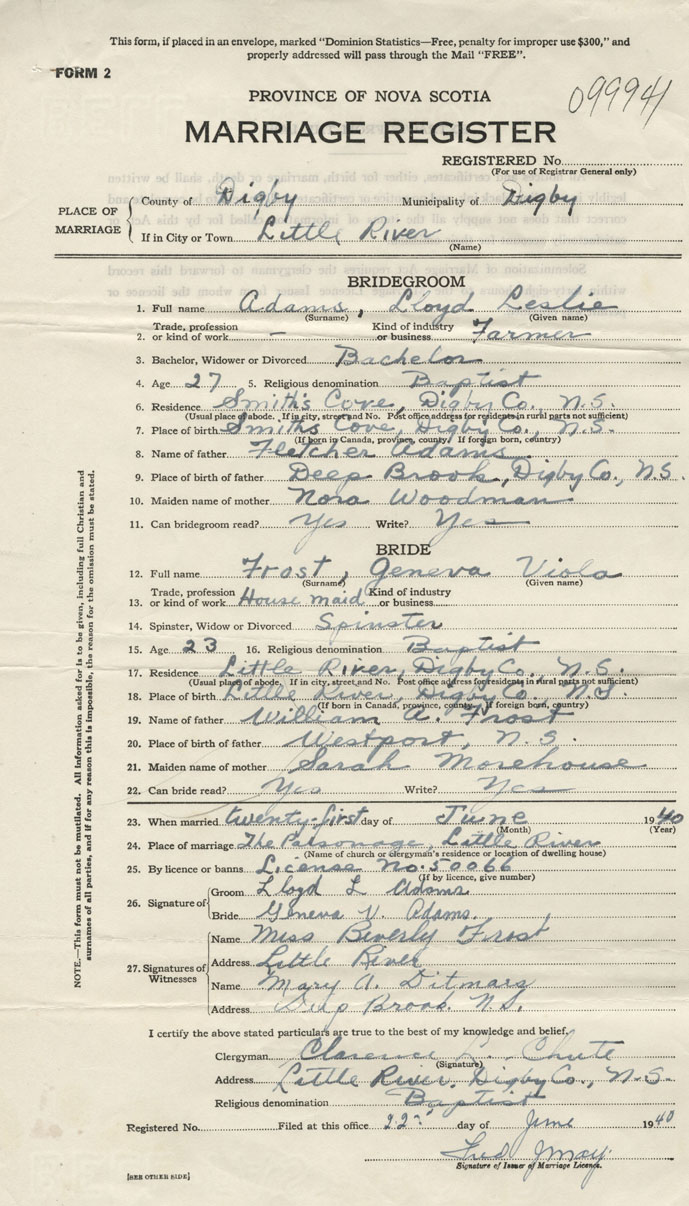 This form, if placed in an envelope, marked "Dominion Statistics—Free, penalty for improper use $300," and
properly addressed will pass through the Mail "FREE".
FORM 2
099941
PROVINCE OF NOVA SCOTIA
MARRIAGE REGISTER
REGISTERED No.
(For use of Registrar General only)
PLACE OF MARRIAGE
County of Digby Municipality of Digby
If in City or Town Little River
(Name)
BRIDEGROOM
1. Full name Adams, Lloyd Leslie
(Surname) (Given name)
2. Trade, profession or kind of work — Kind of industry or business Farmer
3. Bachelor, Widower or Divorced Bachelor
4. Age 27 5. Religious denomination Baptist
6. Residence Smith's Cove, Digby Co., N.S.
(Usual place of abode. If in city, street and No. Post office address for residents in rural parts not sufficient)
7. Place of birth Smith's Cove, Digby Co., N.S.
(If born in Canada, province, county. If foreign born, country)
8. Name of father Fletcher Adams
9. Place of birth of father Deep Brook, Digby Co., N.S.
10. Maiden name of mother Nora Woodman
11. Can bridegroom read? Yes Write? Yes
BRIDE
12. Full name Frost, Geneva Viola
(Surname) (Given name)
13. Trade, profession or kind of work House maid Kind of industry or business
14. Spinster, Widow or Divorced Spinster
15. Age 23 16. Religious denomination Baptist
17. Residence Little River, Digby Co., N.S.
(Usual place of abode. If in city, street and No. Post office address for residents in rural parts not sufficient)
18. Place of birth Little River, Digby Co., N.S.
(If born in Canada, province, county. If foreign born, country)
19. Name of father William A. Frost
20. Place of birth of father Westport, N.S.
21. Maiden name of mother Sarah Morehouse
22. Can bride read? Yes Write? Yes
23. When married twenty-first day of June 1940
(Month) (Year)
24. Place of marriage The Parsonage, Little River
(Name of church or clergyman's residence or location of dwelling house)
25. By licence or banns License No. 50066
(If by licence, give number)
26. Signature of
Groom Lloyd L Adams
Bride Geneva V. Adams.
27. Signatures of Witnesses
Name Miss Beverly Frost
Address Little River
Name Mary A. Ditmars
Address Deep Brook N.S.
I certify the above stated particulars are true to the best of my knowledge and belief.
Clergyman Clarence Chute
(Signature)
Address Little River, Digby Co., N.S.
Religious denomination Baptist
Registered No. Filed at this office 22 day of June 1940
Signature of Issuer of Marriage Licence.
[SEE OTHER SIDE]
NOTE.—This form must not be mutilated. All information asked for is to be given, including full Christian and
surnames of all parties, and if for any reason this is impossible, the reason for the omission must be stated.